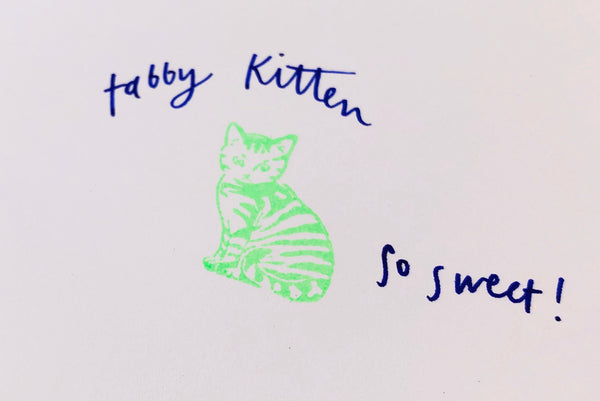 tabby Kitten
so sweet!